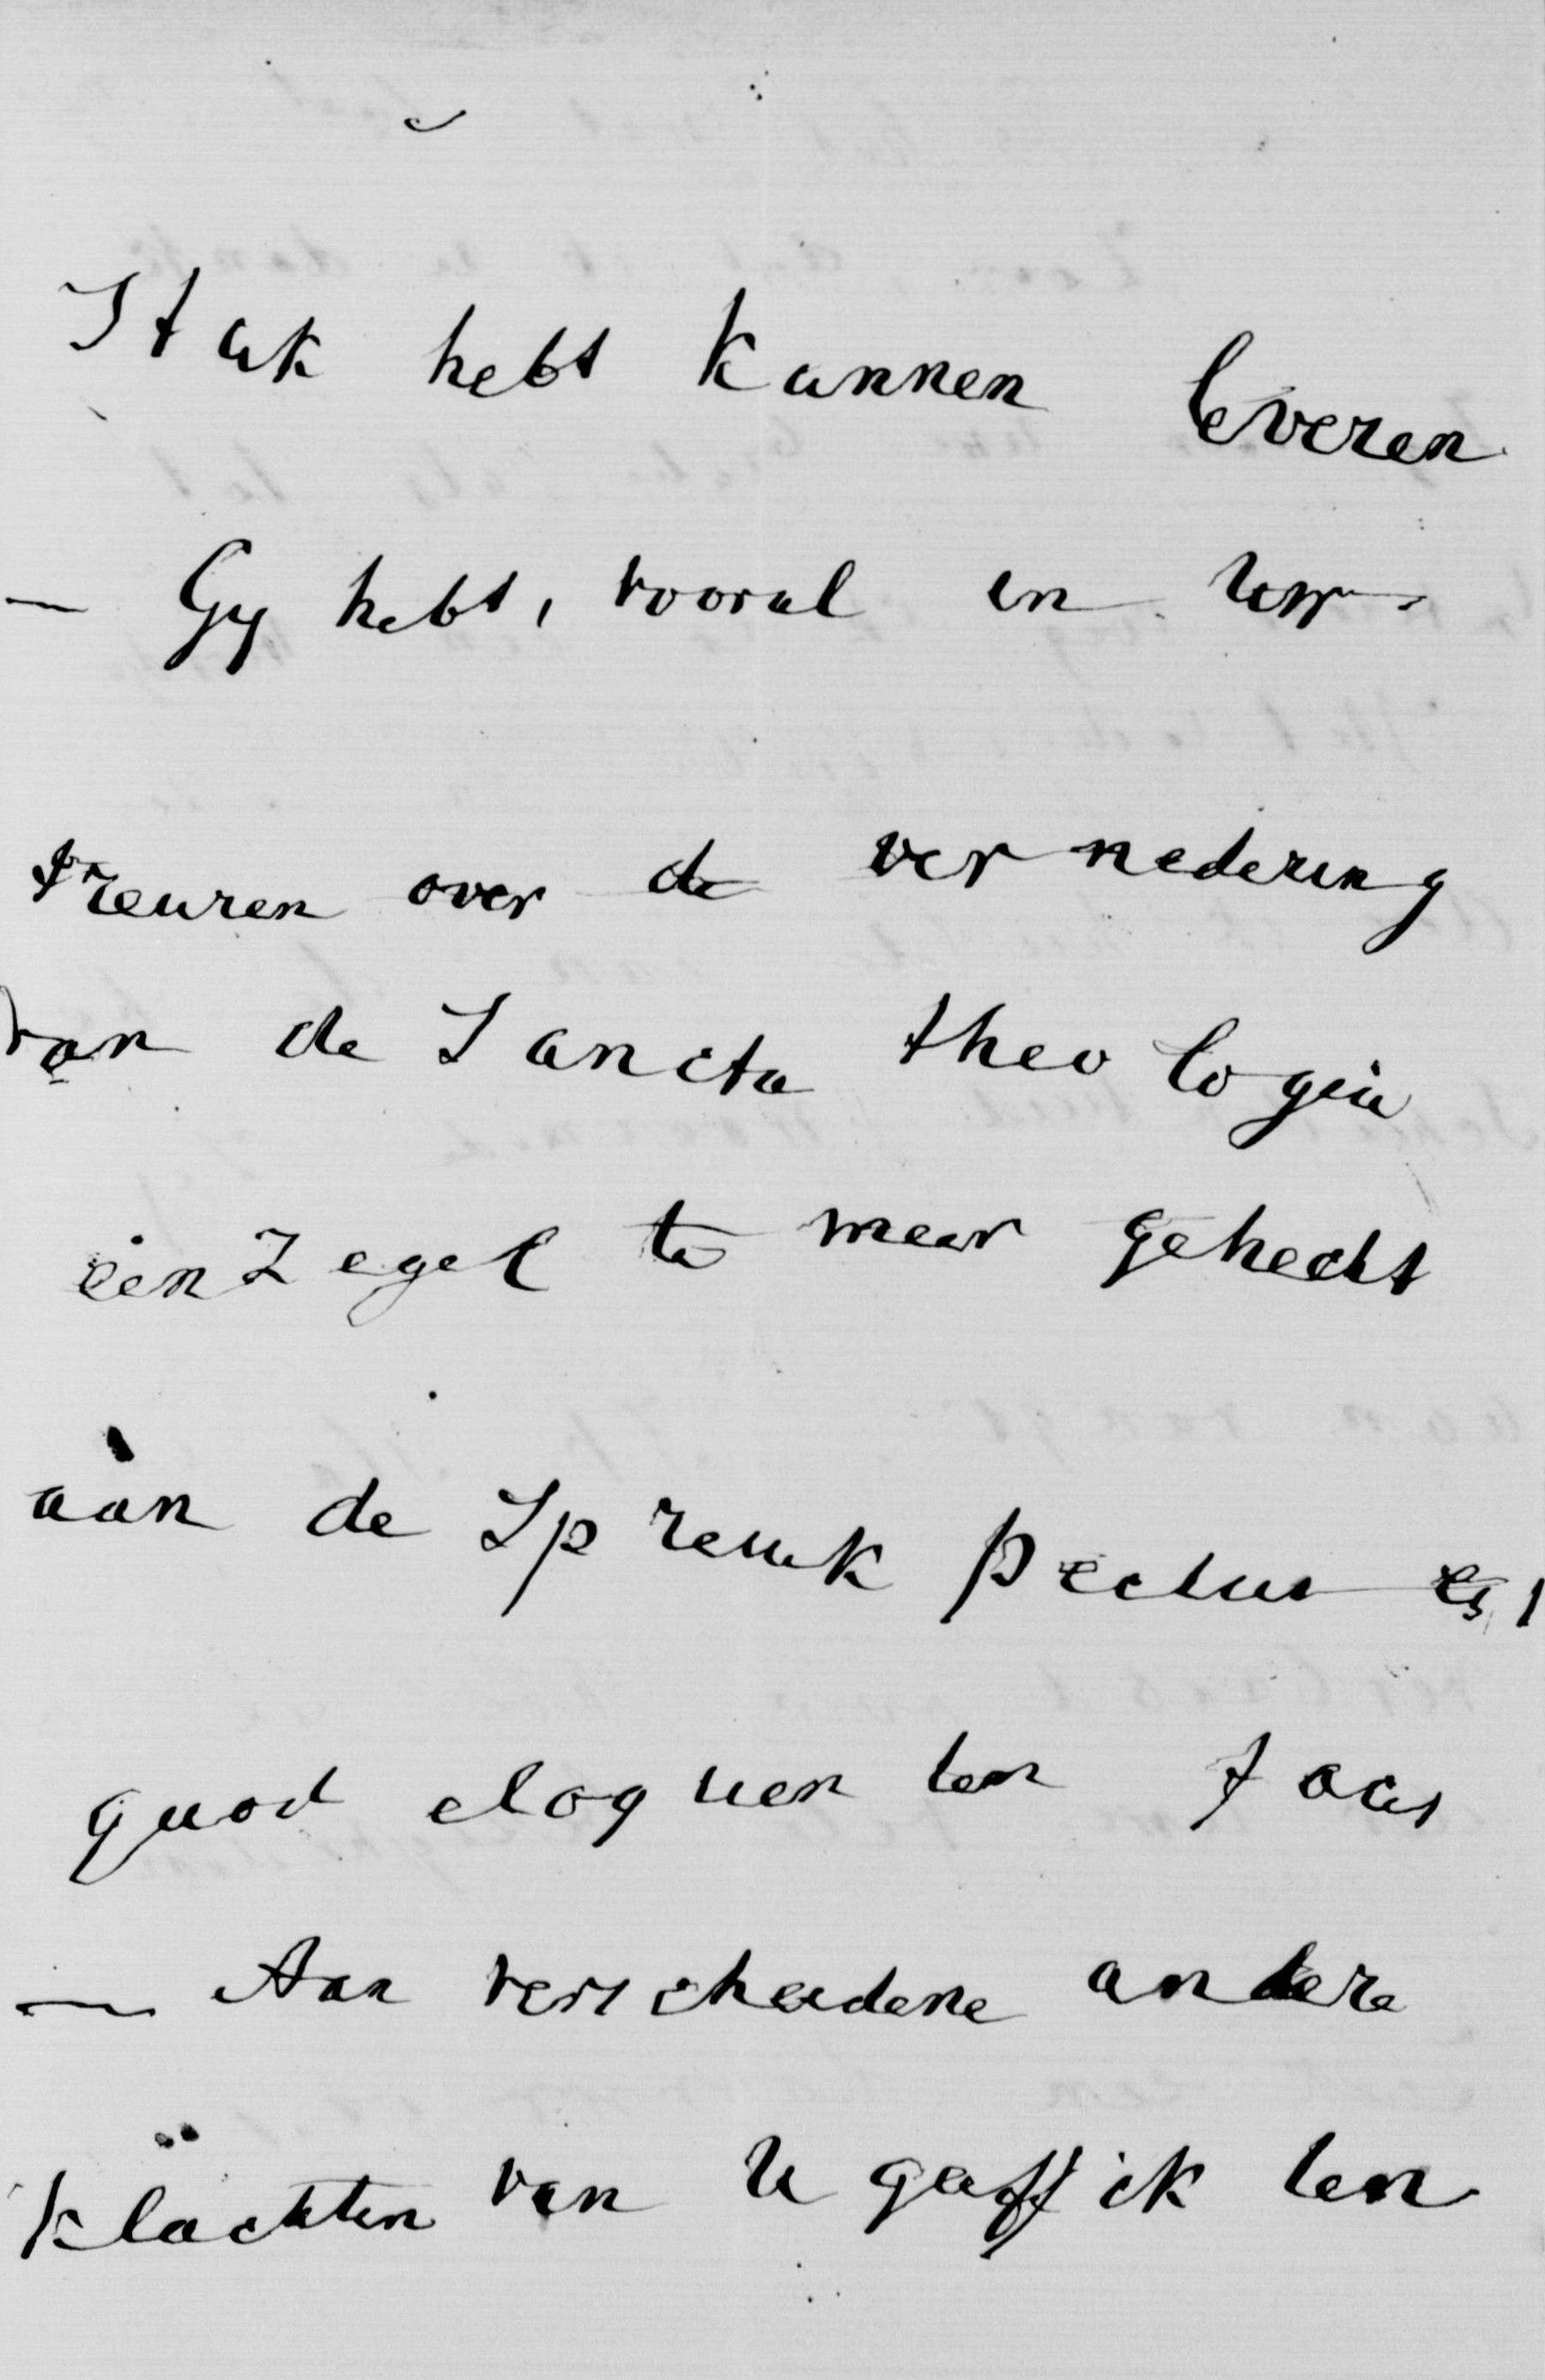 Stuk hebt kunnen leveren
— Gy hebt, vooral in uw
treuren over de vernedering
van de Sancta theologia
een zegel te meer gehecht
aan de Spreuk pectus est
quod eloquentem facit
— Aan verscheidene andere
klachten van U gaff ik een